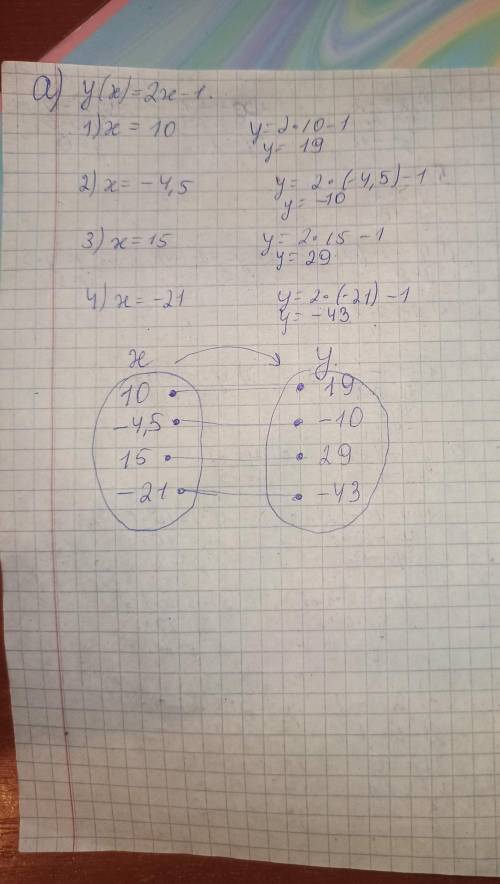 а) y(x)=2x-1.
1) x = 10 y=2·10-1
y= 19
2) x= -4,5 y= 2·(-4,5)-1
y= -10
3) x=15 y= 2·15 -1
y= 29
4) x= -21 y=2·(-21) -1
y= -43
x y
10 19
-4,5 -10
15 29
-21 -43